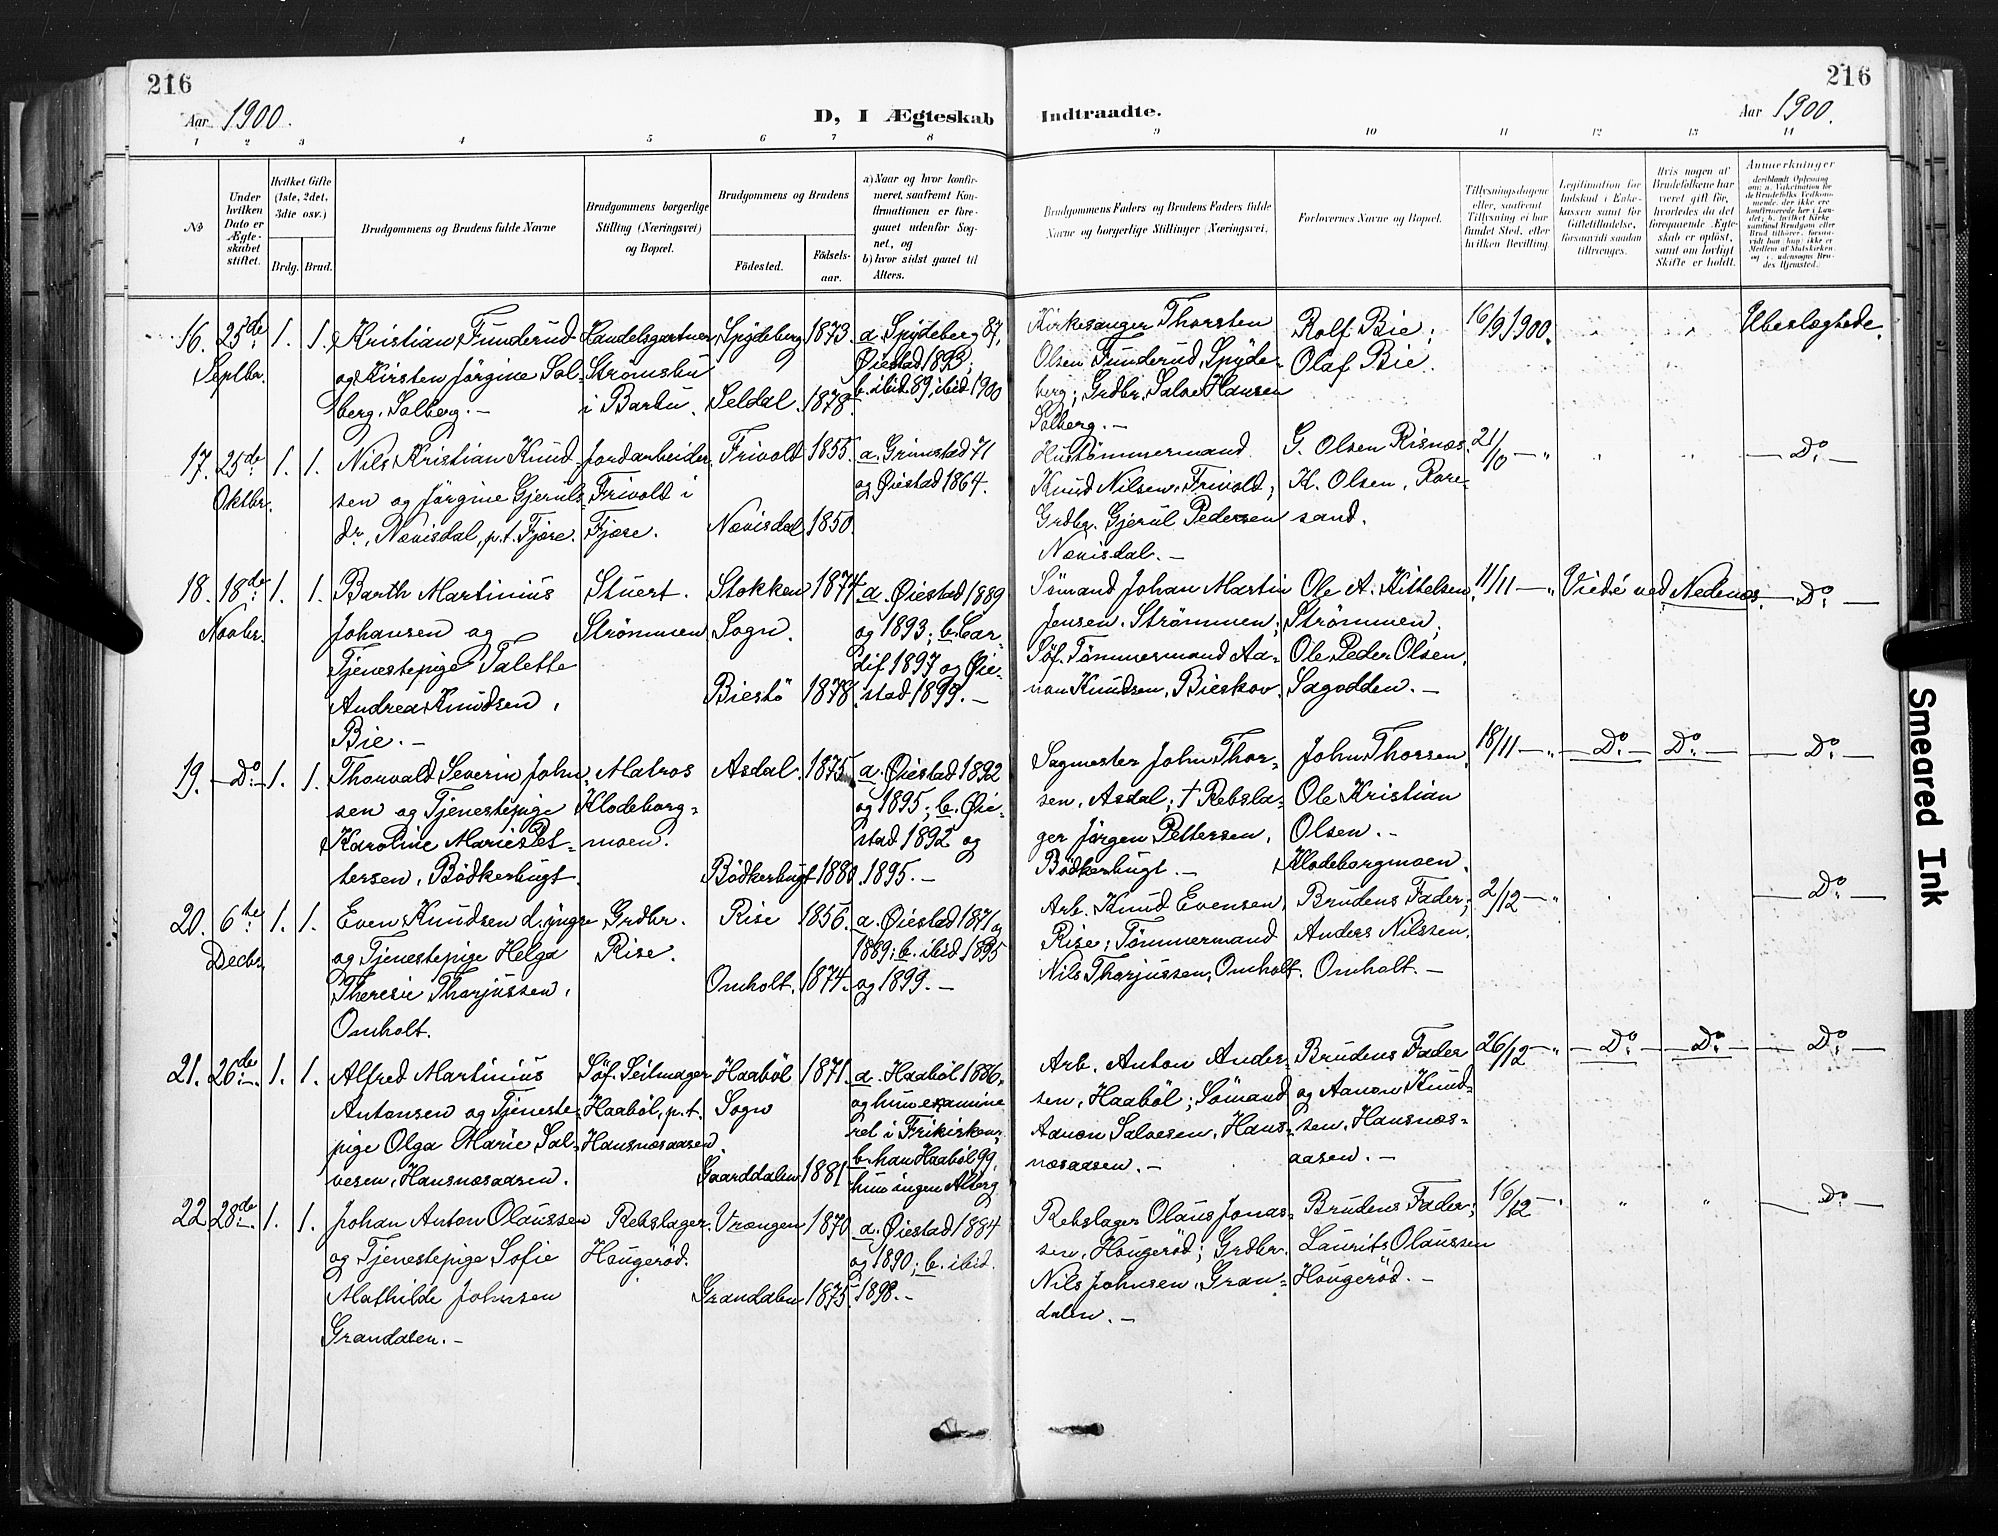 216
Aar 1900.
D, I Ægteskab
1 2 3 4 5 6 7 8
No
Under hvilken Dato er Ægteskabet stiftet.
Hvilket Gifte (1ste, 2det, 3die osv.)
Brdg. Brud.
Brudgommens og Brudens fulde Navne
Brudgommens borgerlige Stilling (Næringsvei) og Bopæl.
Brudgommens og Brudens
Födested.
Födselsaar.
a) Naar og hvor konfirmeret, saafremt Konfirmationen er foregaaet udenfor Sognet, og
b) hvor sidst gaaet til Alters.
16. 25de Septbr. 1. 1.
Kristian Funderud
og Kirsten Jörgine Sol-
berg, Solberg. –
Handelsgartner,
Strømsbu
i Barbu.
Spydeberg 1873.
Seldal. 1878.
a. Spydeberg 87,
Øiestad 1893;
b. ibid. 89, ibid. 1900
17. 25de Oktbr. 1. 1.
Nils Kristian Knud-
sen og Jörgine Gjeruls-
dr., Nævisdal, p.t. Fjære.
Jordarbeider.
Frivold i
Fjære.
Frivold 1855.
Nævisdal 1850.
a. Grimstad 71
og Øiestad 1864.
18. 18de Novbr. 1. 1.
Barth Martinius
Johansen og
Tjenestepige Talette
Andrea Knudsen,
Bie. –
Stuert.
Strömmen
Stokken 1874
Sogn.
Biestö 1878.
a. Øiestad 1889
og 1893; b. Car-
dif 1897 og Øie-
stad 1899. –
19. – Do – 1. 1.
Thorvald Severin John-
sen og Tjenestepige
Karoline Marie Pet-
tersen, Bödkerbugt.
Matros
Klodeborg-
moen.
Asdal. 1875
Bödkerbugt 1880.
a. Øiestad 1892
og 1895; b. Øie-
stad 1892 og
1895. –
20. 6te Decbr. 1. 1.
Even Knudsen d. yngre
og Tjenestepige Helga
Theresie Thorjussen,
Omholt.
Grdbr.
Rise.
Rise 1856.
Omholt. 1874.
a. Øiestad 1871 og
1889; b. ibid 1895
og 1899. –
21. 26de –. 1. 1.
Alfred Martinius
Antonsen og Tjeneste-
pige Olga Marie Sal-
vesen, Hausnæsaasen.
Söf. Seilmager
Haaböl, p.t.
Hausnæsaasen.
Haaböl 1871.
Sogn
Gaarddalen 1881
a. Haaböl 1886,
og hun examine-
ret i Frikirken;
b. han Haaböl 99,
hun ingen Alterg.
22. 28de –. 1. 1.
Johan Anton Olaussen
og Tjenestepige Sofie
Mathilde Johnsen
Grandalen. –
Rebslager.
Hougeröd.
Vrængen 1870
Grandalen 1875.
a. Øiestad 1884
og 1890; b. ibid.
1898. –
216
Indtraadte.
Aar 1900.
9 10 11 12 13 14
Brudgommens Faders og Brudens Faders fulde Navne og borgerlige Stillinger (Næringsvei).
Forlovernes Navne og Bopæl.
Tillysningsdagene eller, saafremt Tillysning ei har fundet Sted, efter hvilken Bevilling.
Legitimation for Indskud i Enkekassen samt for Giftetilladelse, forsaavidt saadan tiltrænges.
Hvis nogen af Brudefolkene har været gift før, hvorledes da det foregaaende Ægteskab er opløst, samt om lovligt Skifte er holdt.
Anmærkninger
Kirkesanger Thorsten
Olsen Funderud, Spyde-
berg; Grdbr. Salve Hansen
Solberg. –
Rolf Bie;
Olaf Bie.
16/9 1900. " "
Ubeslægtede.
Hustömmermand
Knud Nilsen, Frivold;
Grdbr. Gjerul Pedersen
Nævisdal. –
G. Olsen Risnæs.
K. Olsen, Rore-
sand.
21/10 – " " "
– Do –
Sömand Johan Martin
Jensen, Strömmen;
Söf. Tömmermand Aa-
non Knudsen, Bieskov.
Ole A. Kittelsen,
Strömmen;
Ole Peder Olsen,
Sagodden. –
11/11 – " Vide ved Nedenæs. – Do –
Sagmester John Thor-
sen, Asdal; † Rebsla-
ger Jörgen Pettersen,
Bödkerbugt. –
John Thorsen,
Ole Kristian
Olsen. –
Klodeborgmoen.
18/11 – " – Do – Do – – Do –
Arb. Knud Evensen,
Rise; Tömmermand
Nils Thorjussen, Omholt.
Brudens Fader;
Anders Nilssen,
Omholt. –
2/12 – " " "
– Do –
Arb. Anton Ander-
sen, Haaböl; Sömand
Aanon Salvesen, Haus-
næsaasen. –
Brudens Fader
og Aanon Knud-
sen, Hausnæs-
aasen. –
26/12 – " – Do – – Do – – Do –
Rebslager Olaus Jonas-
sen, Hougeröd; Grdbr.
Nils Johnsen, Gran-
dalen. –
Brudens Fader;
Laurits Olaussen
Hougeröd. –
16/12 – " " "
– Do –
Smeared Ink